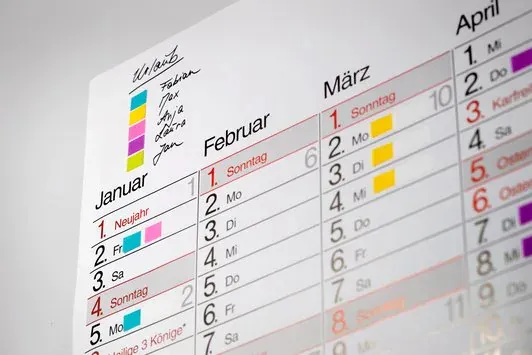 Urlaub
Fabian
Max
Anja
Laura
Jan
Januar 1
1. Neujahr
2. Fr
3. Sa
4. Sonntag
5. Mo 2
Heilige 3 Könige*
Februar
1. Sonntag 6
2. Mo
3. Di
4. Mi
5. Do
6. Fr
7. Sa
März
1. Sonntag 10
2. Mo
3. Di
4. Mi
5. Do
6. Fr
7. Sa
8. Sonntag
9. Mo 11
April
1. Mi
2. Do
3. Karfrei
4. Sa
5. Oster
6. Oster
7. Di
8. Mi
9.